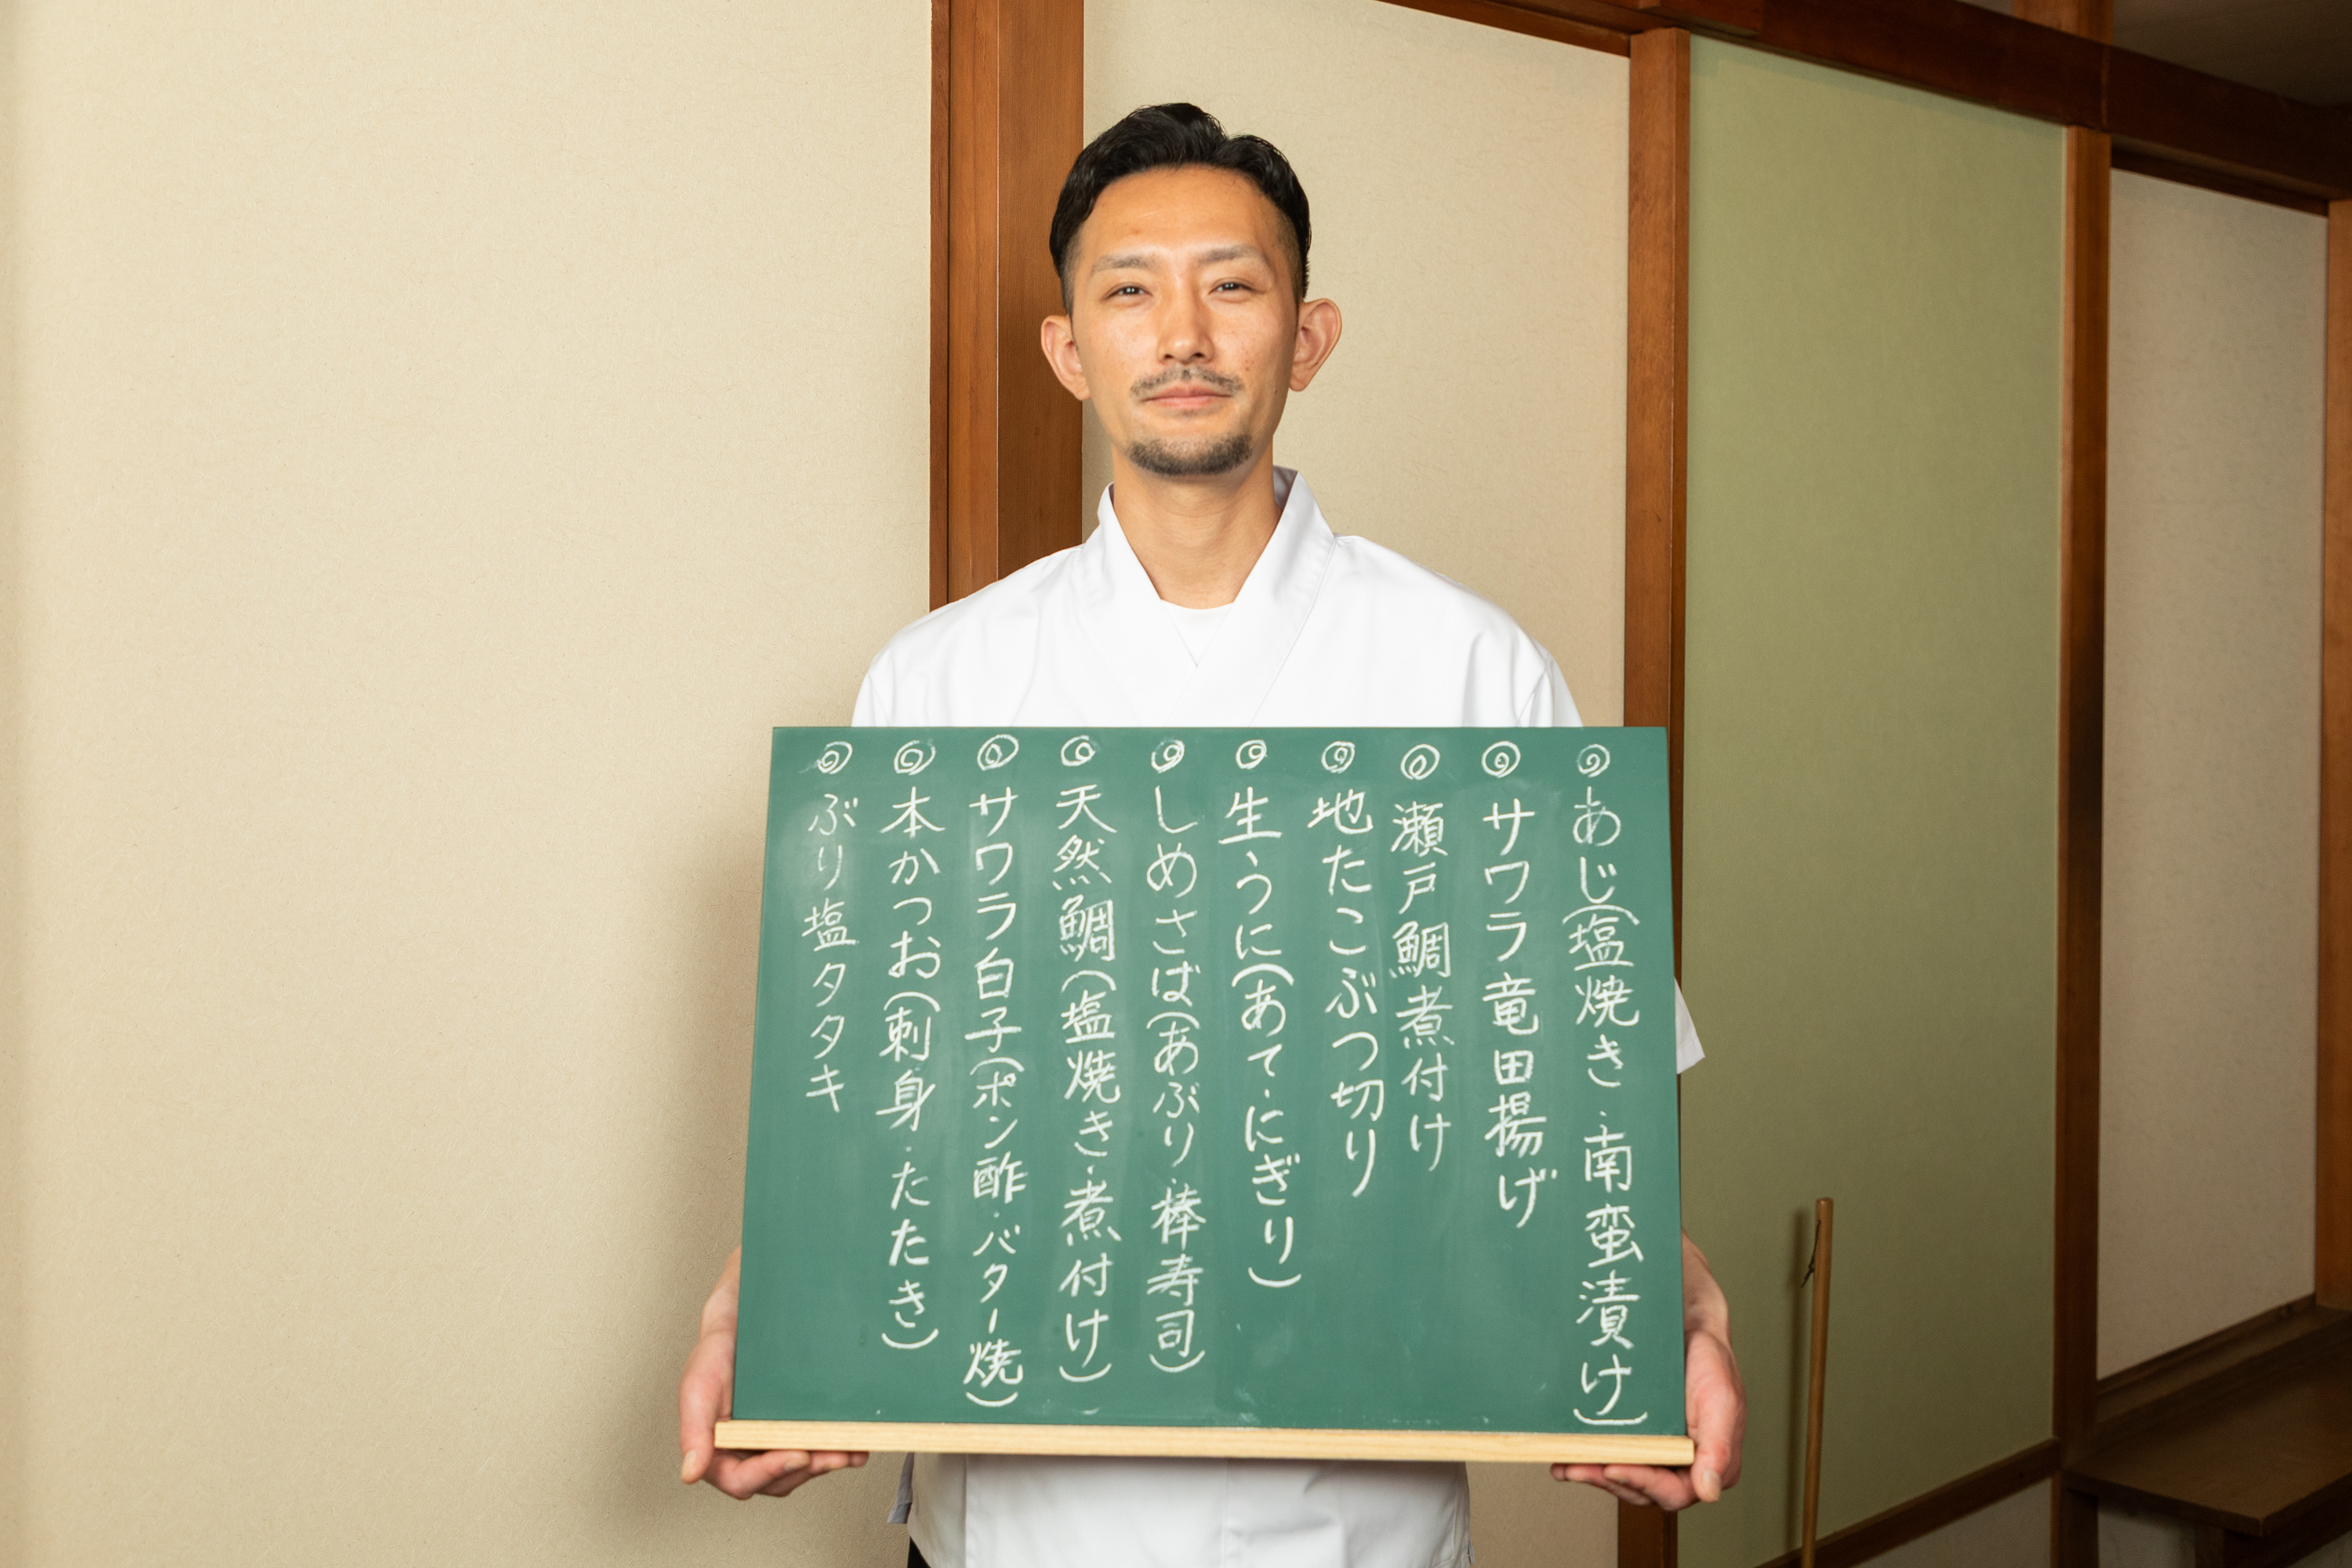 ◎あじ(塩焼き・南蛮漬け)
◎サワラ竜田揚げ
◎瀬戸鯛煮付け
◎地たこぶつ切り
◎生うに(あて・にぎり)
◎しめさば(あぶり・棒寿司)
◎天然鯛(塩焼き・煮付け)
◎サワラ白子(ポン酢・バター焼)
◎本かつお(刺身・たたき)
◎ぶり塩タタキ